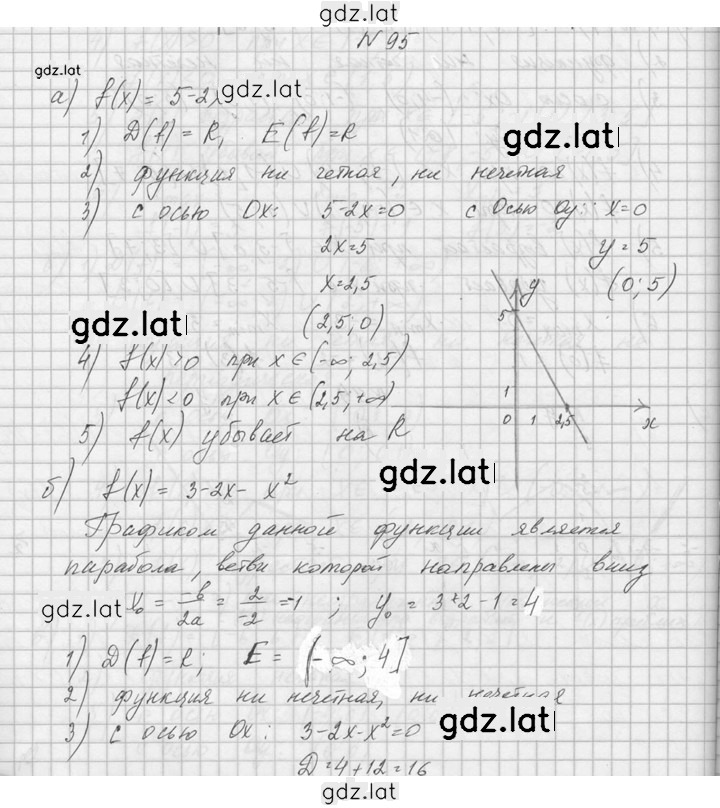 gdz.lat
N 95
gdz.lat
а) f(x) = 5-2x gdz.lat
1) D(f) = R, E(f)=R
gdz.lat
2) функция ни четная, ни нечетная
3) с осью Ox: 5-2x=0 с осью Oy: x=0
2x=5 y=5
x=2,5 (0; 5)
gdz.lat (2,5; 0)
4) f(x)>0 при x∈(-∞; 2,5)
f(x)<0 при x∈(2,5; +∞)
5) f(x) убывает на R
y
5
1
0 1 2,5 x
gdz.lat
б) f(x) = 3-2x- x²
Графиком данной функции является
парабола, ветви которой направлены вниз
gdz.lat x₀ = -b/2a = 2/-2 = -1 ; y₀ = 3+2-1=4
1) D(f)=R; E = (-∞; 4]
2) функция ни нечетная, ни нечетная
3) с осью Ox: 3-2x-x²=0 gdz.lat
D=4+12=16
gdz.lat